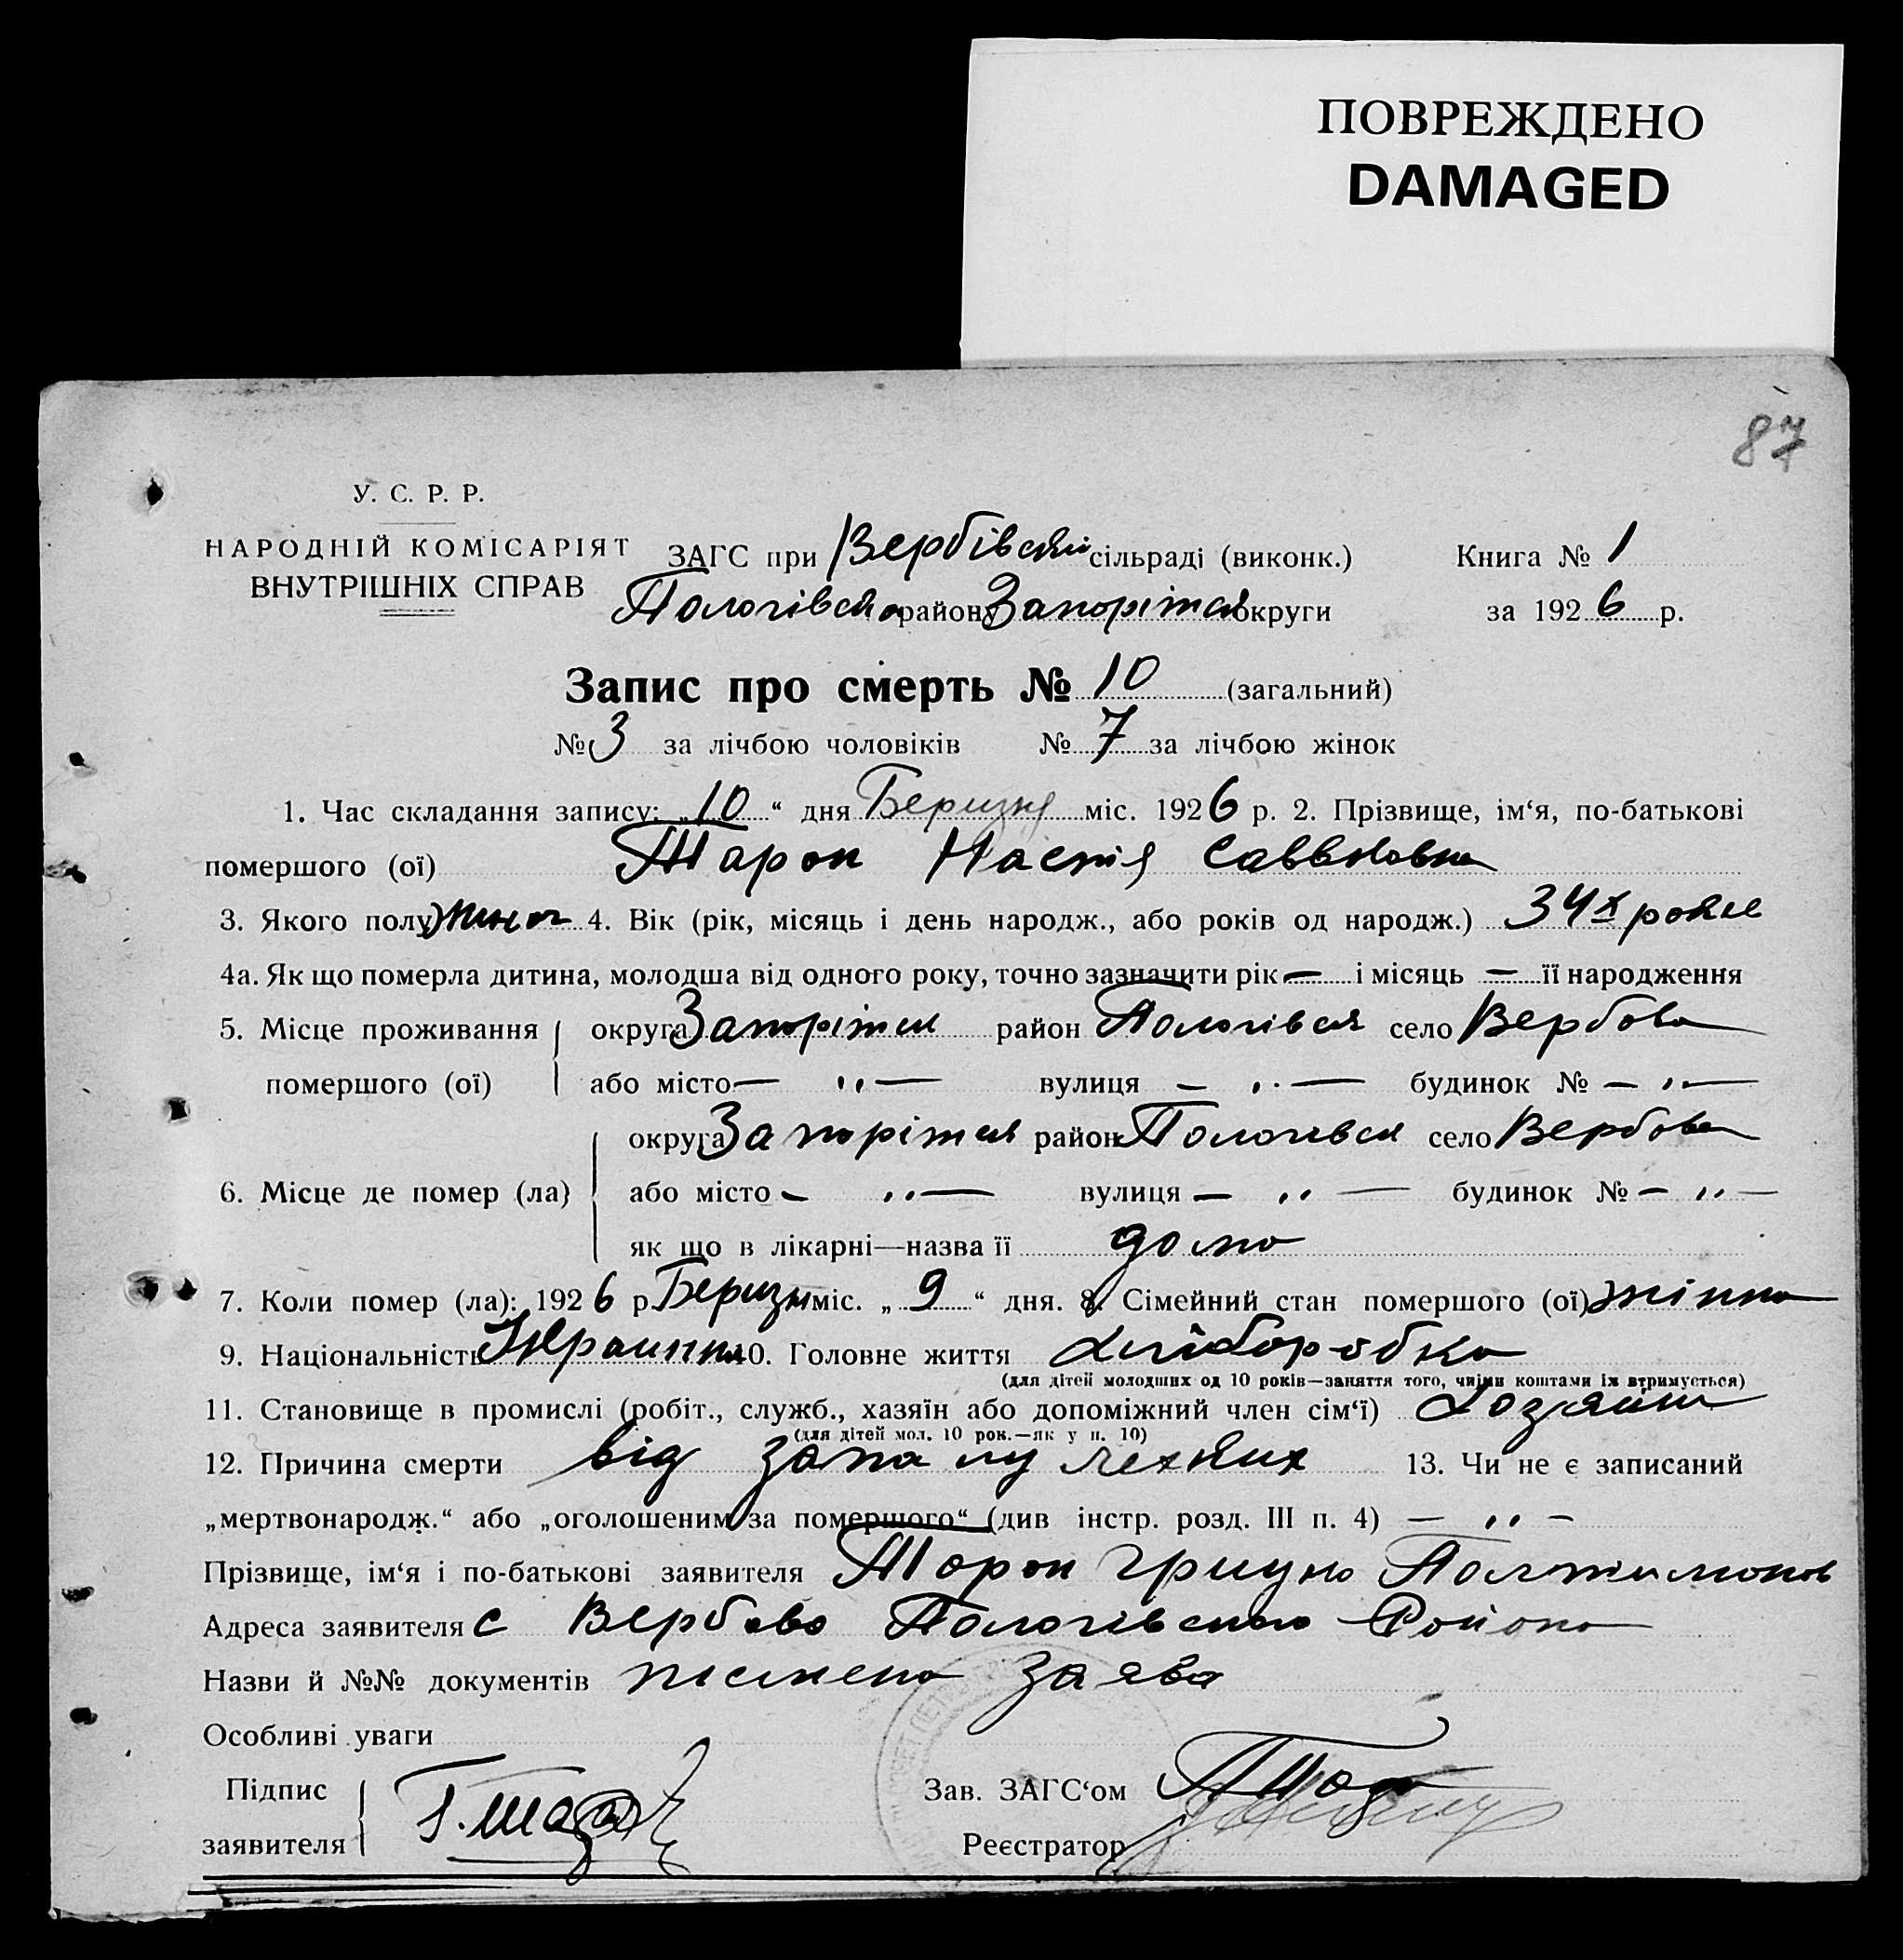 ПОВРЕЖДЕНО
DAMAGED
87
У. С. Р. Р.
НАРОДНІЙ КОМІСАРІЯТ
ВНУТРІШНІХ СПРАВ
ЗАГС при Вербівській сільраді (виконк.) Книга № 1
Пологівська району Запоріжся округи за 1926 р.
Запис про смерть № 10 (загальний)
№ 3 за лічбою чоловіків № 7 за лічбою жінок
1. Час складання запису: „10“ дня Беризня міс. 1926 р. 2. Прізвище, ім‘я, по-батькові
помершого (ої) Шарап Настія Саввковна
3. Якого полу 4. Вік (рік, місяць і день народж., або років од народж.) 34х роки
4а. Як що померла дитина, молодша від одного року, точно зазначити рік — і місяць — її народження
5. Місце проживання округа Запоріжся район Пологівся село Вербова
помершого (ої) або місто — „ — вулиця — „ — будинок № — „ —
округа Запоріжся район Пологівся село Вербова
6. Місце де помер (ла) або місто — „ — вулиця — „ — будинок № — „ —
як що в лікарні—назва її дома
7. Коли помер (ла): 1926 р. Беризн міс. „9“ дня. 8. Сімейний стан помершого (ої) жінка
9. Національність Украинка 10. Головне життя хліборобка
(для дітей молодших од 10 років—заняття того, чиїми коштами їх втримується)
11. Становище в промислі (робіт., служб., хазяїн або допоміжний член сім‘ї) Хозяйка
(для дітей мол. 10 рок.—як у п. 10)
12. Причина смерти від запалу лехких 13. Чи не є записаний
„мертвонародж.“ або „оголошеним за помершого“ (див інстр. розд. III п. 4) — „ —
Прізвище, ім‘я і по-батькові заявителя Шарап Грицко
Адреса заявителя с Вербова Пологівського Района
Назви й №№ документів писмена заява
Особливі уваги
Підпис
заявителя
Зав. ЗАГС‘ом
Реєстратор